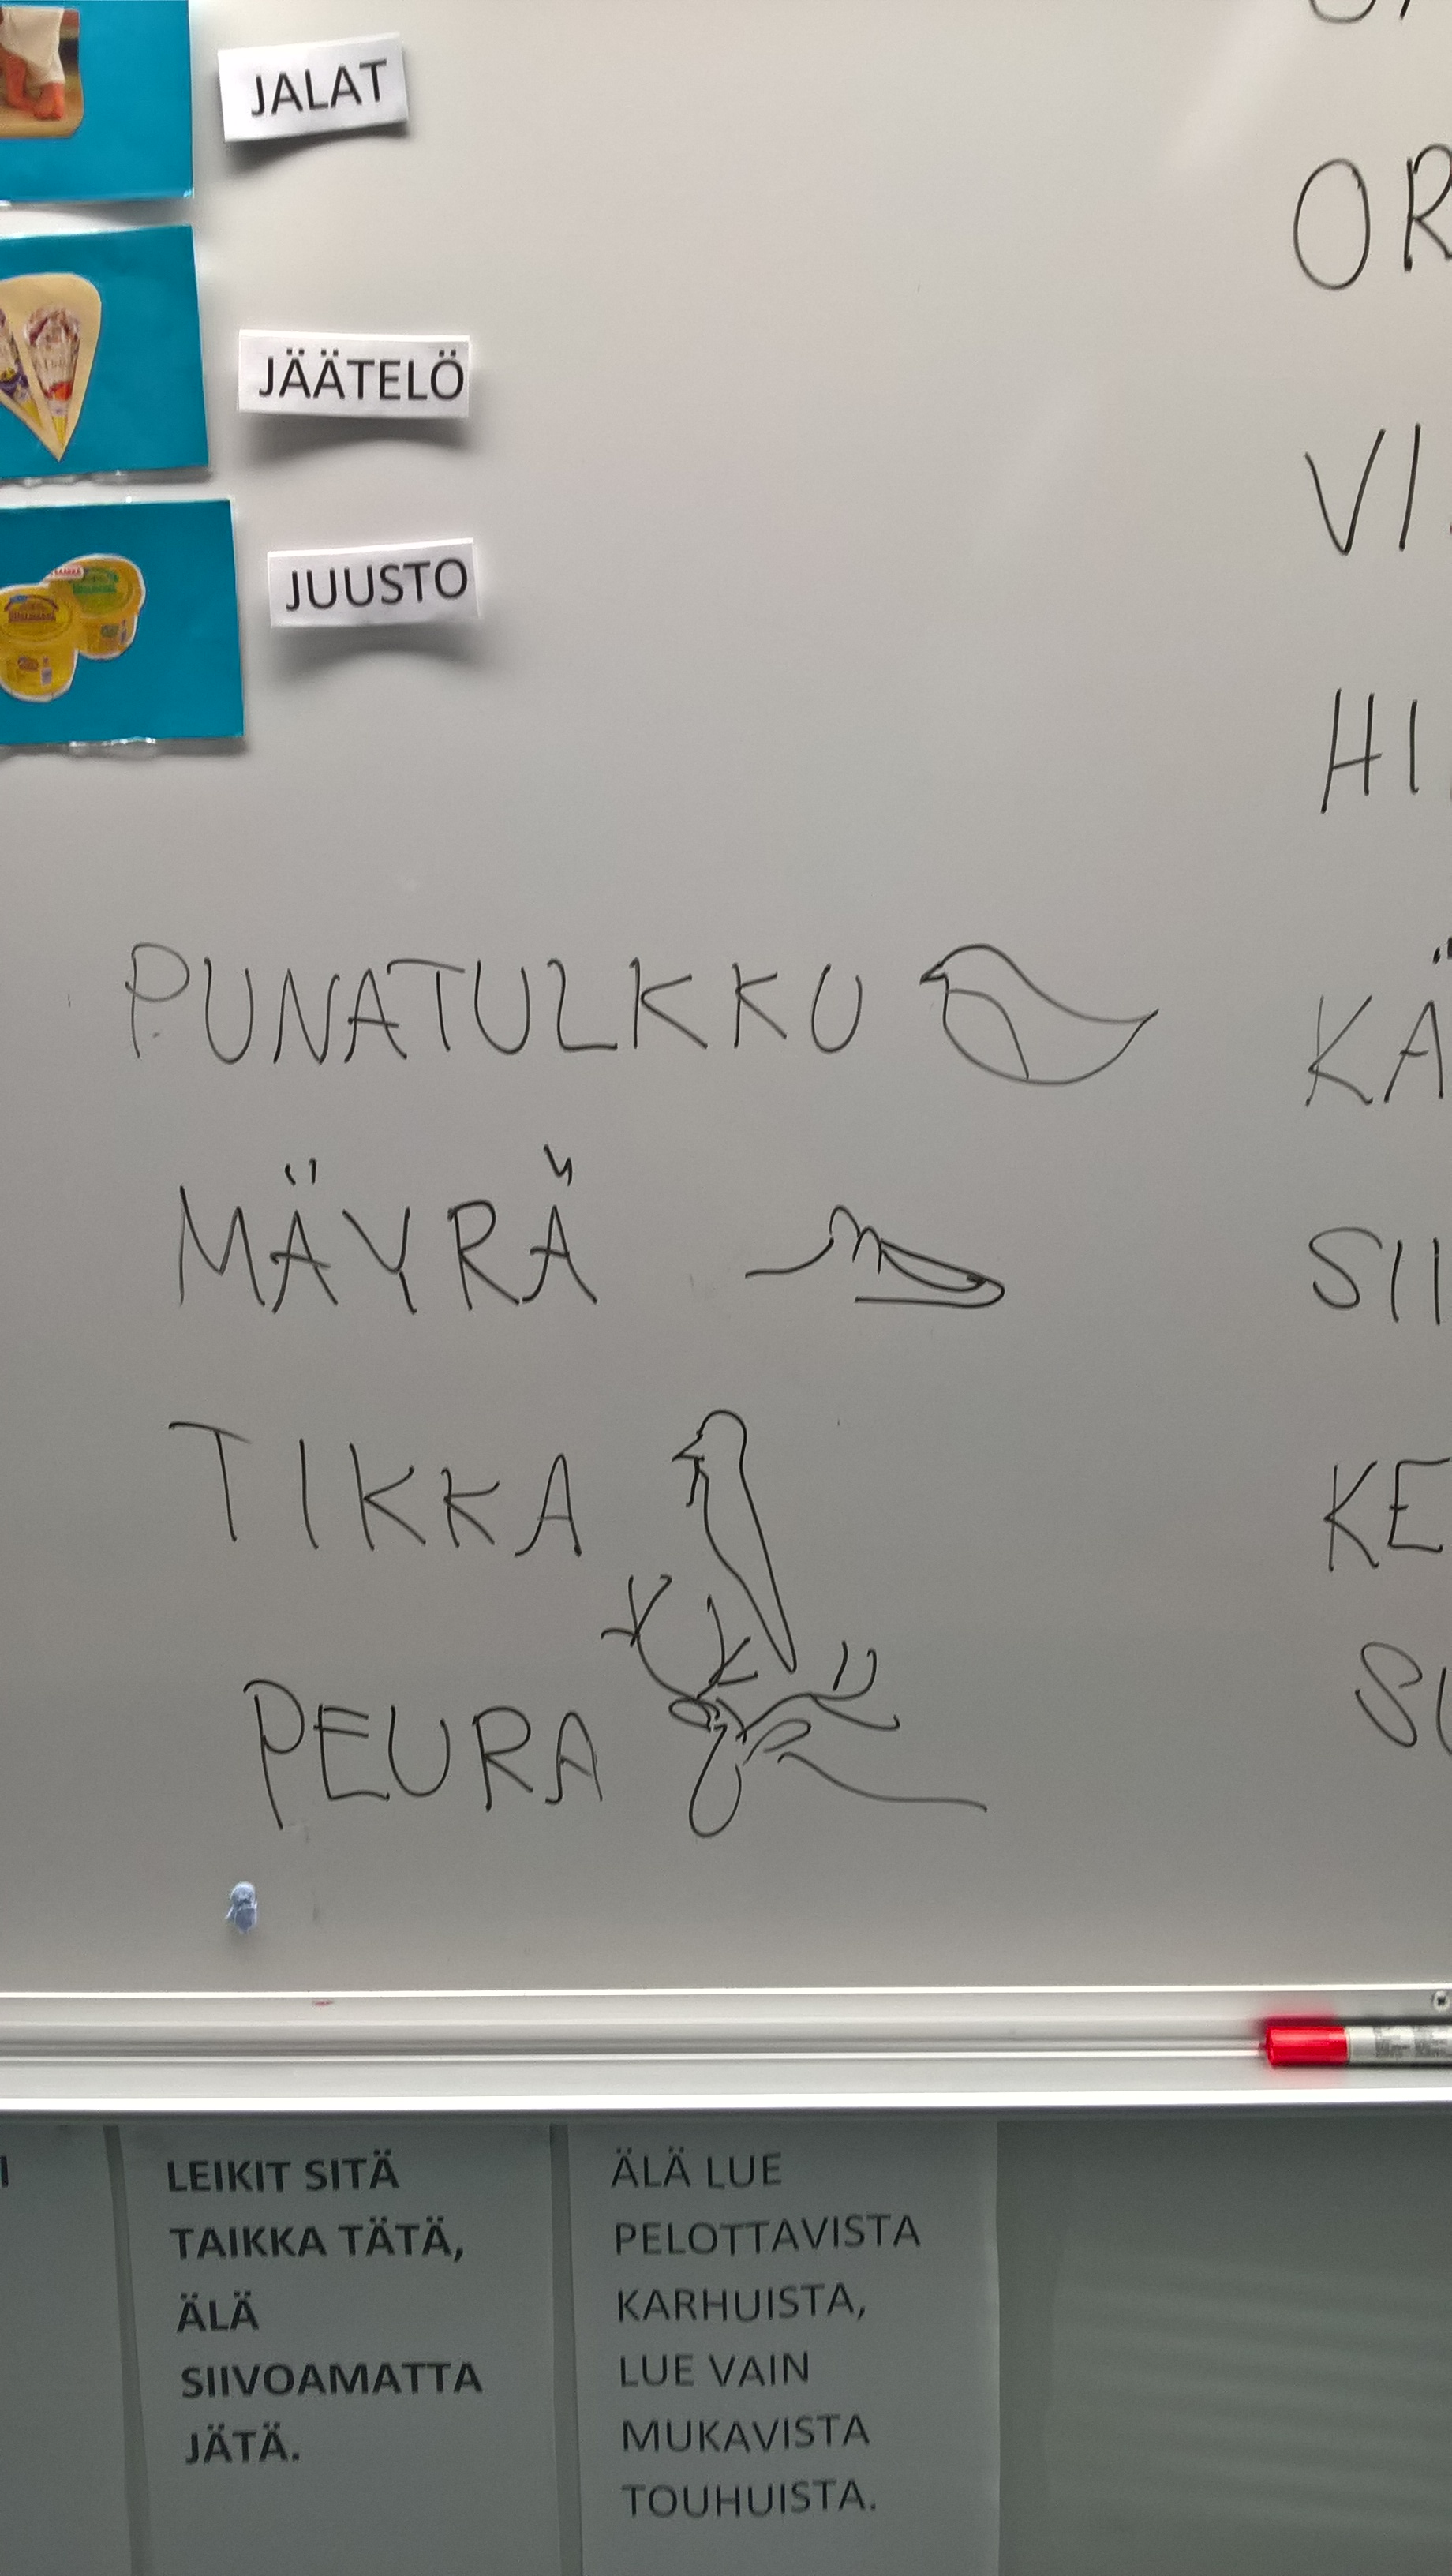 JALAT
JÄÄTELÖ
JUUSTO
PUNATULKKU
MÄYRÄ
TIKKA
PEURA
OR
VI
HI
KÄ
SII
KE
LEIKIT SITÄ
TAIKKA TÄTÄ,
ÄLÄ
SIIVOAMATTA
JÄTÄ.
ÄLÄ LUE
PELOTTAVISTA
KARHUISTA,
LUE VAIN
MUKAVISTA
TOUHUISTA.